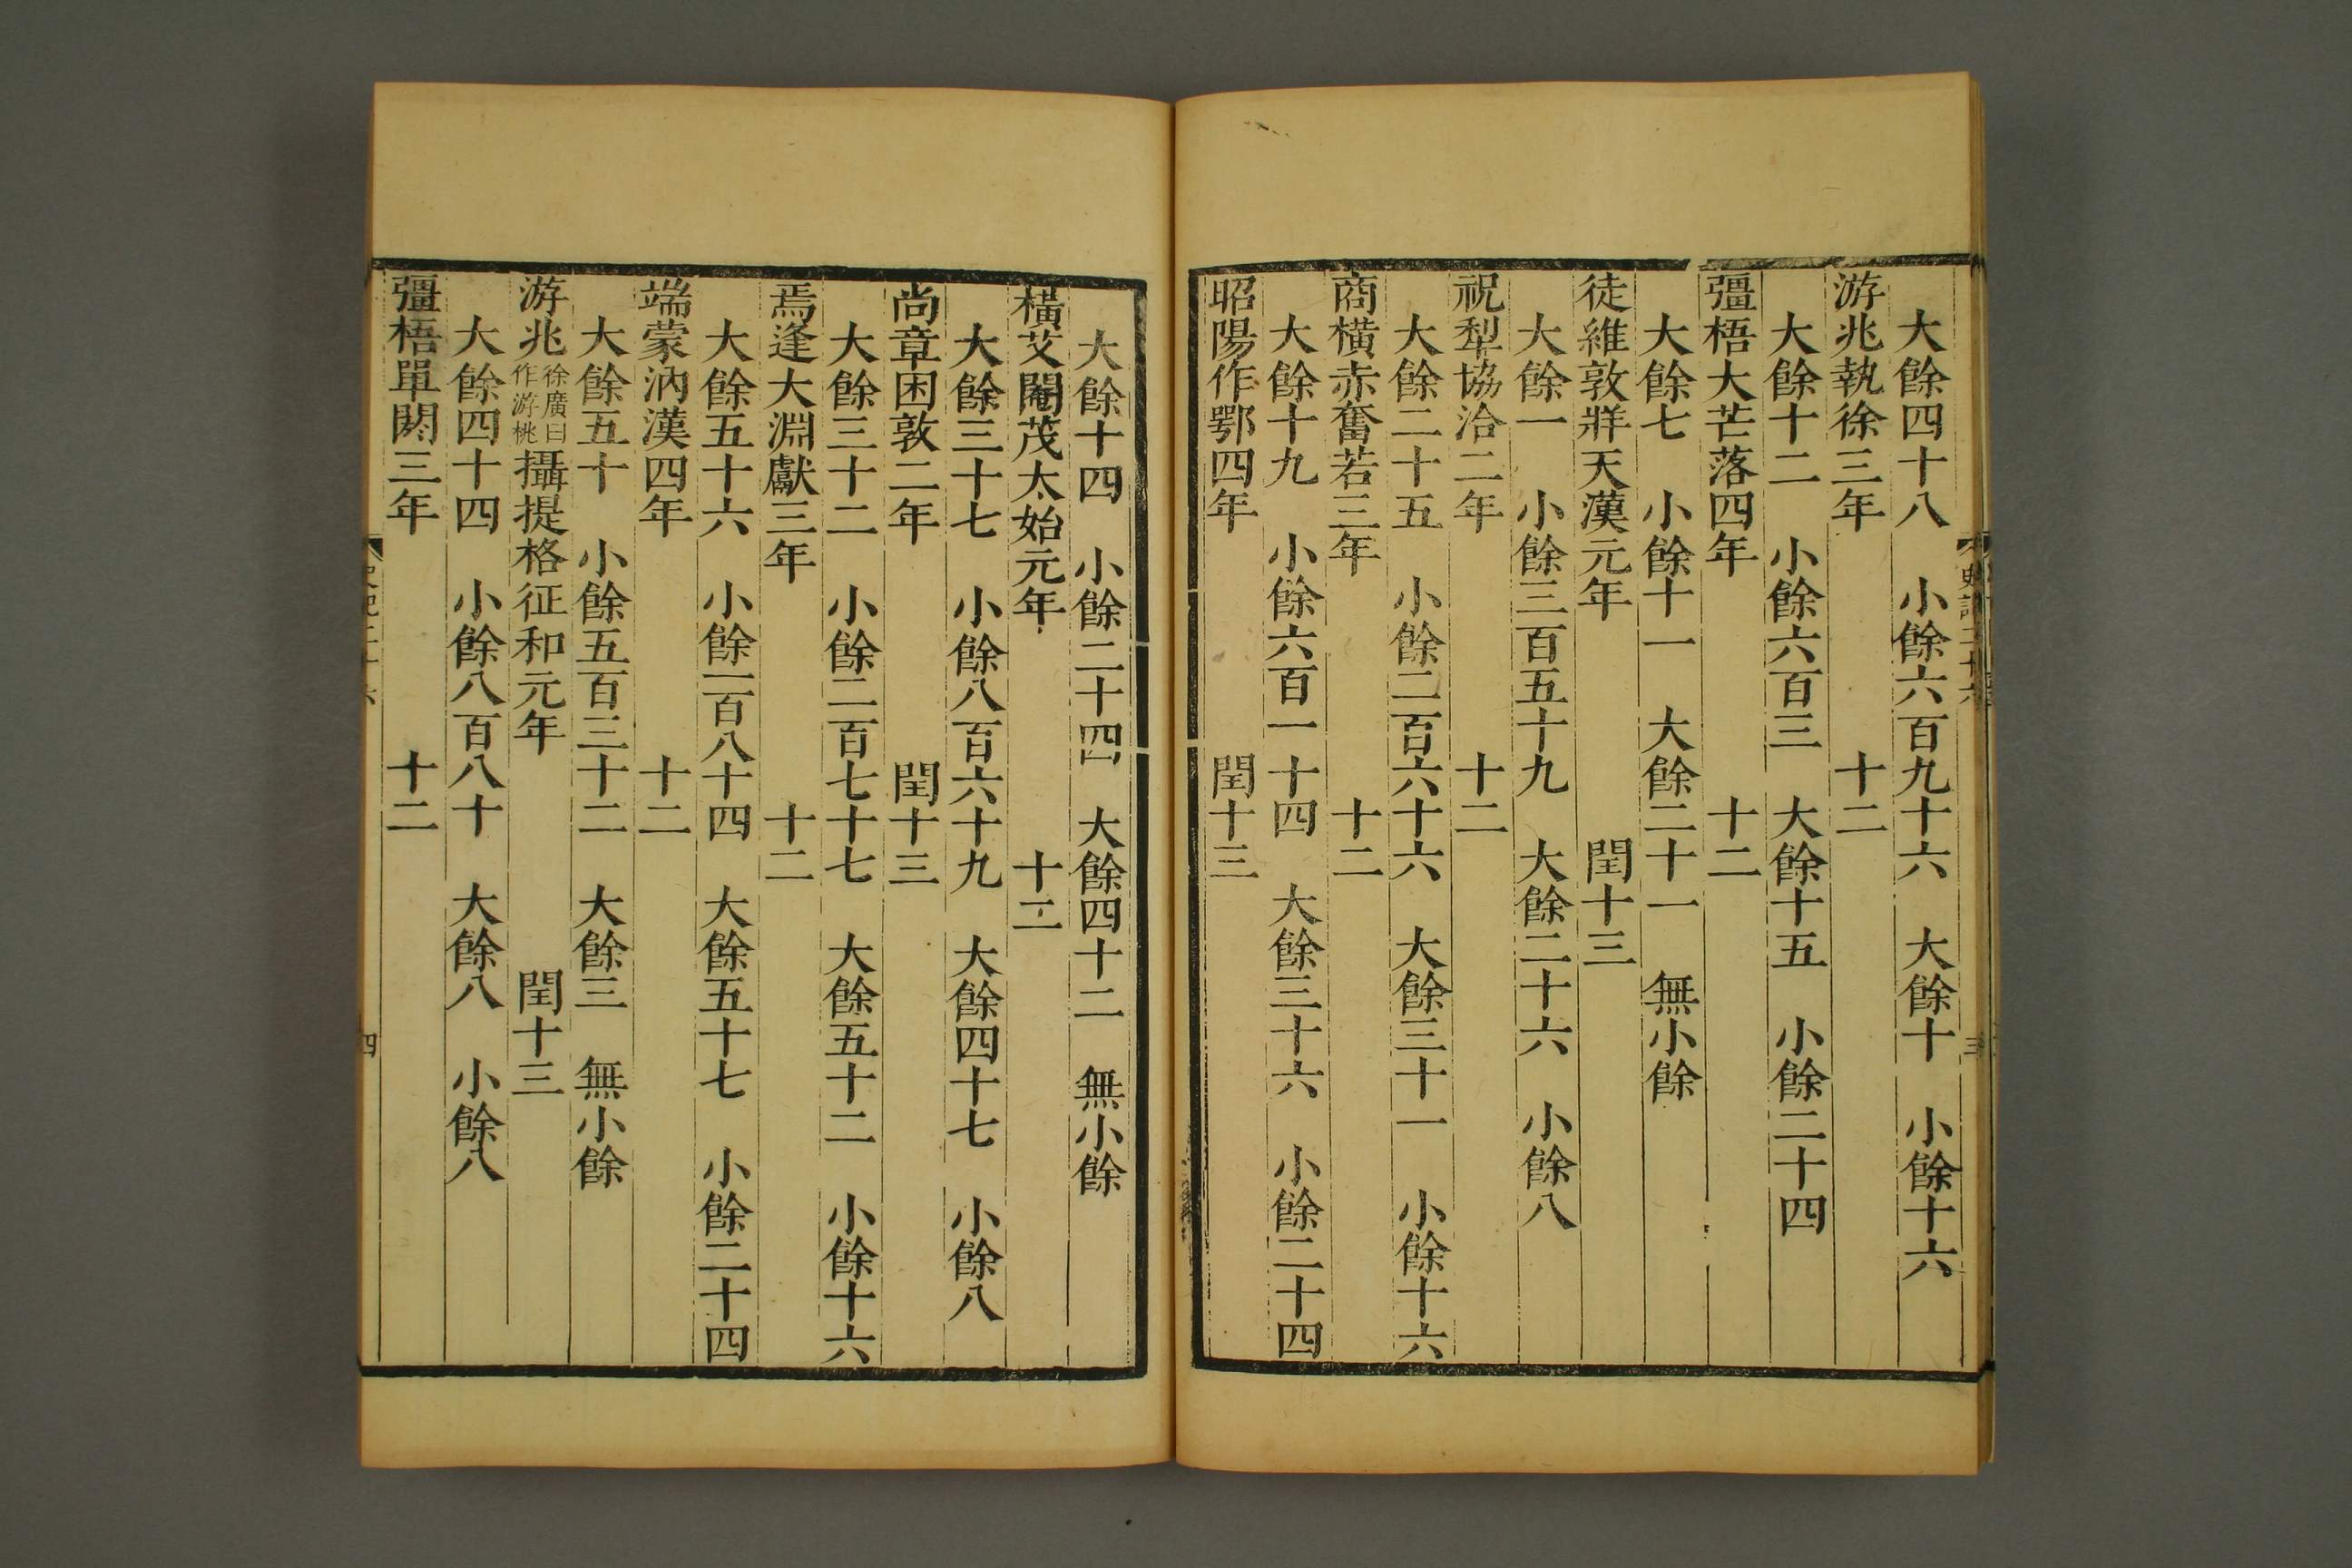 大餘四十八 小餘六百九十六 大餘十 小餘十六
游兆執徐三年 十二
大餘十二 小餘六百三 大餘十五 小餘二十四
彊梧大芒落四年 十二
大餘七 小餘十一 大餘二十一 無小餘
徒維敦牂天漢元年 閏十三
大餘一 小餘三百五十九 大餘二十六 小餘八
祝犁協洽二年 十二
大餘二十五 小餘二百六十六 大餘三十一 小餘十六
商橫赤奮若三年 十二
大餘十九 小餘六百一十四 大餘三十六 小餘二十四
昭陽作鄂四年 閏十三
大餘十四 小餘二十四 大餘四十二 無小餘
橫艾閹茂太始元年 十二
大餘三十七 小餘八百六十九 大餘四十七 小餘八
尚章困敦二年 閏十三
大餘三十二 小餘二百七十七 大餘五十二 小餘十六
焉逢大淵獻三年 十二
大餘五十六 小餘一百八十四 大餘五十七 小餘二十四
端蒙汭漢四年 十二
大餘五十 小餘五百三十二 大餘三 無小餘
游兆徐廣曰作游桃攝提格征和元年 閏十三
大餘四十四 小餘八百八十 大餘八 小餘八
彊梧單閼三年 十二
四